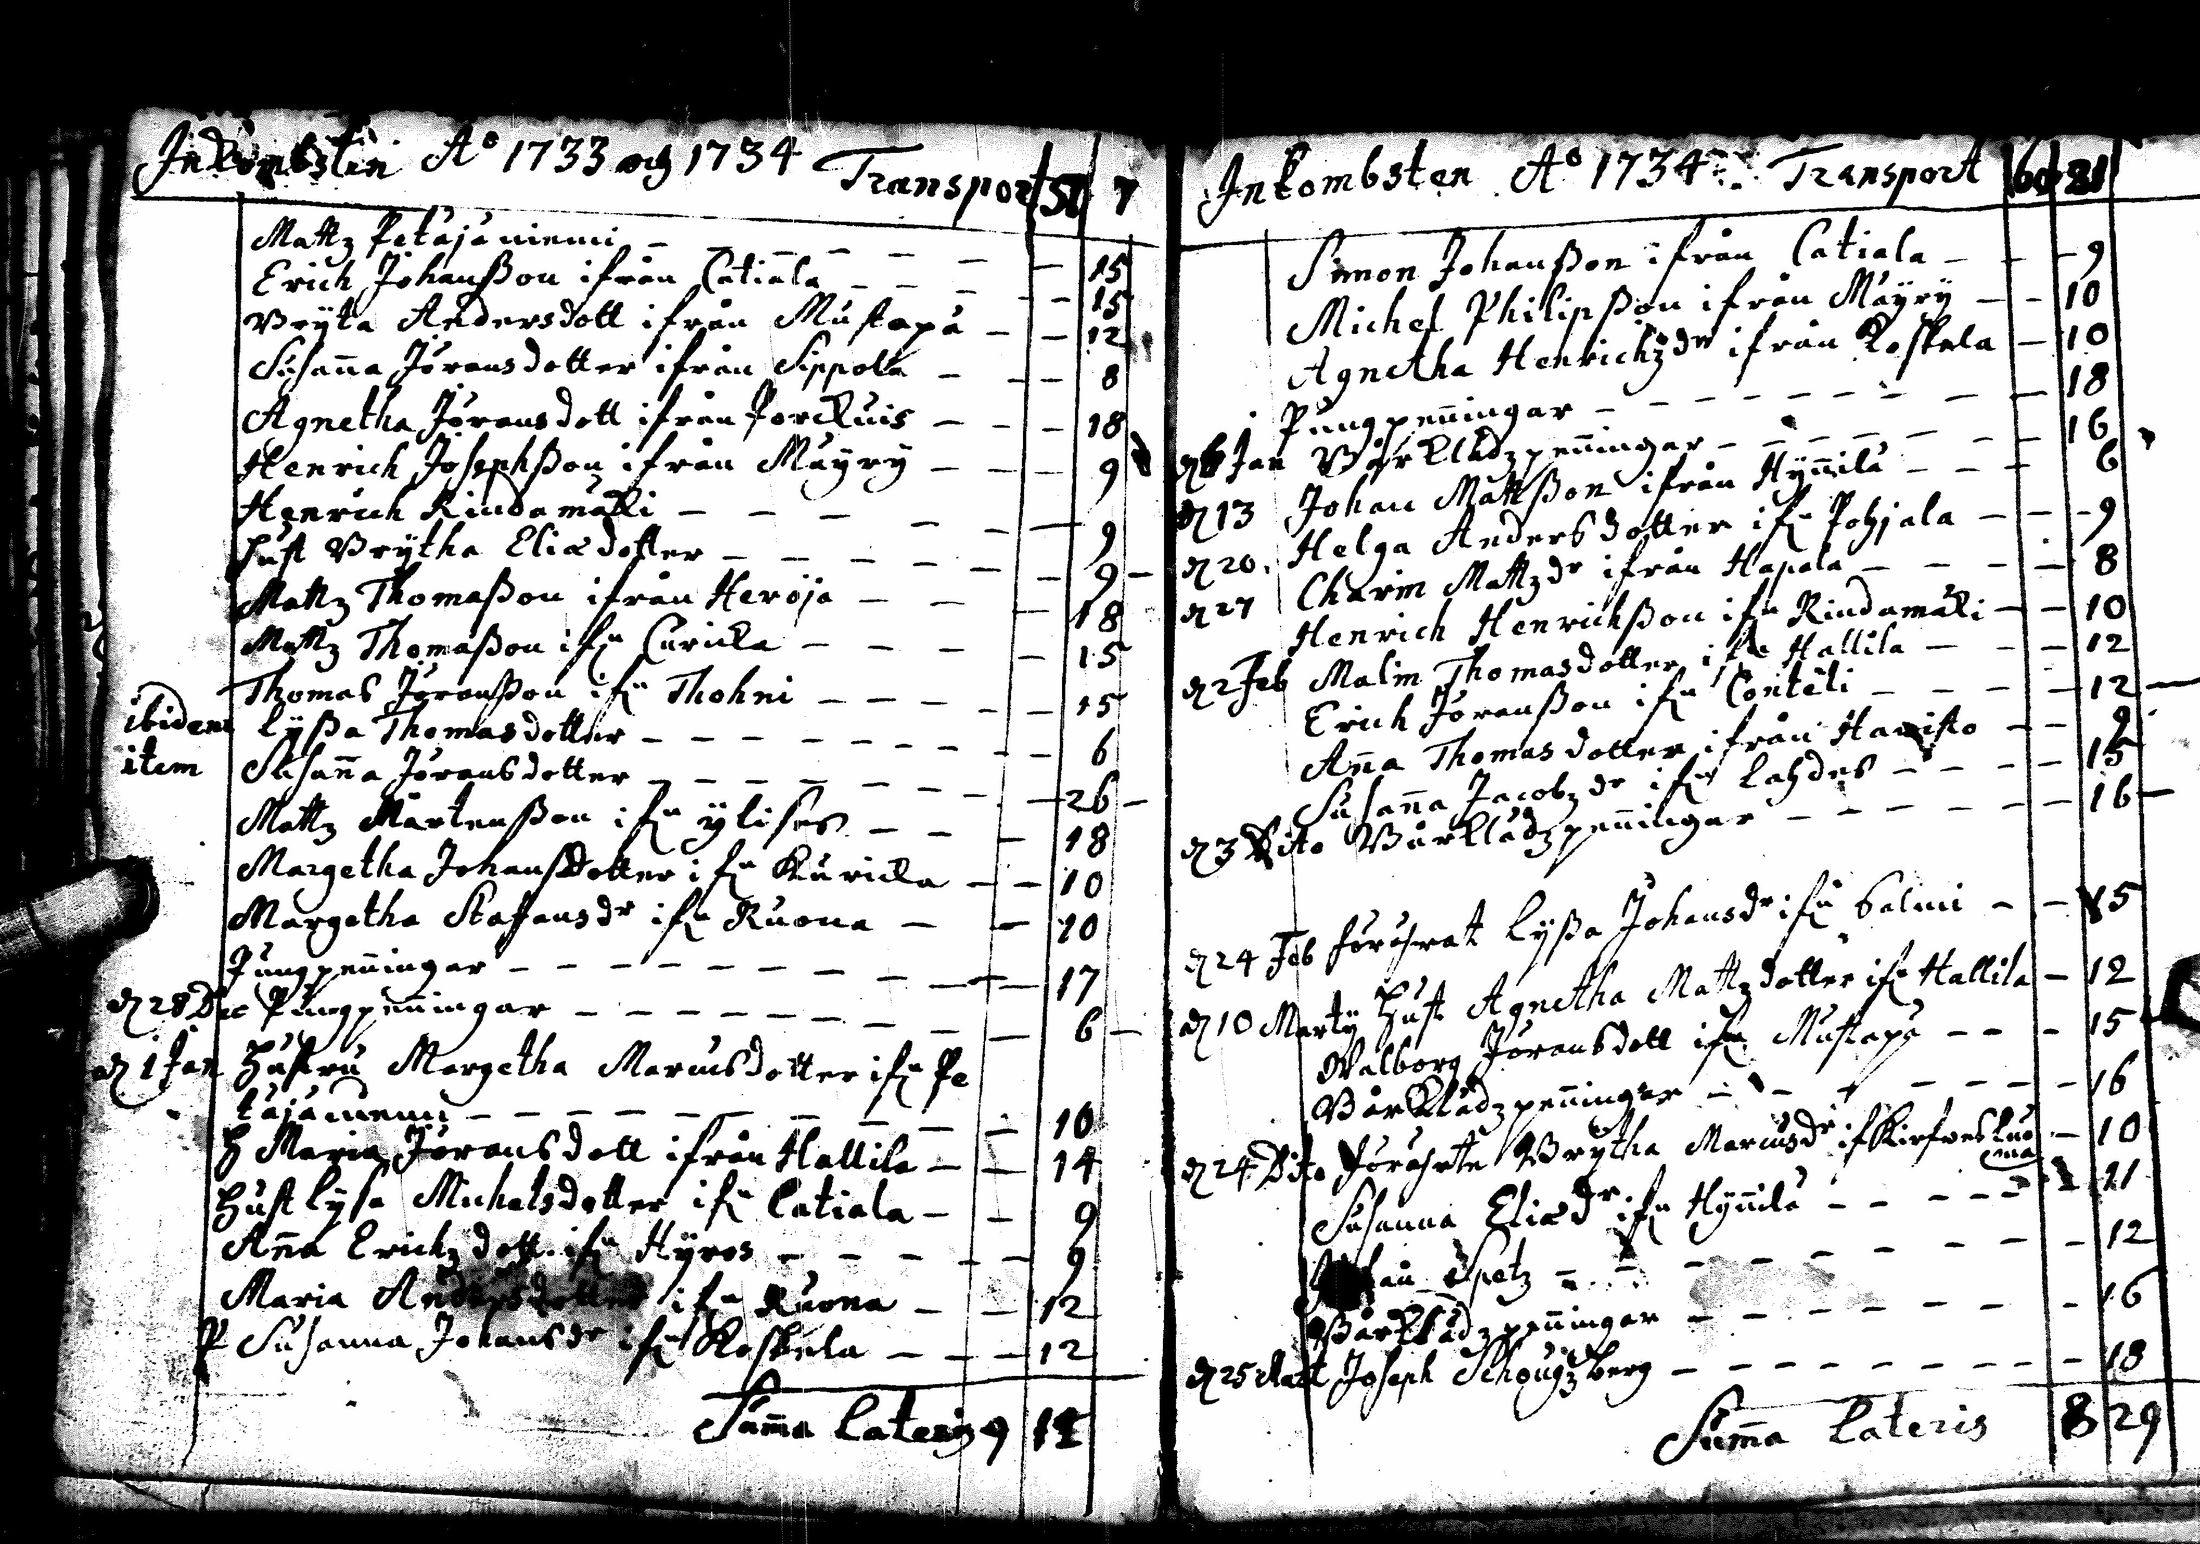 Inkombsten Aº 1733 och 1734 Transport 51 7
Mattz Petäjäniemi — 15
Erich Johanßon ifrån Catiala — 15
Bryta Andersdott ifrån Mustapä — 12
Susanna Jöransdotter ifrån Sippola — 8
Agnetha Jöransdott ifrån Porckuis — 18
Henrich Josephßon ifrån Mäyry — 9
Henrich Rindamäki — 9
Hust Brytha Eliædotter — 9
Mattz Thomaßon ifrån Heröja — 18
Mattz Thomaßon ifn Curicka — 15
Thomas Jöranßon ifn Thohni — 15
ibidem Lyßa Thomasdotter — 6
item Susanna Jöransdotter — 26
Mattz Mårtenßon ifn ÿlises — 18
Margetha Johansdotter ifn Kuricka — 10
Margetha Stafansdr ifn Ruona — 10
Pungpenningar — 17
d 28 Dec Pungpenningar — 6
d 1 Jan Hustru Margetha Marcusdotter ifn Pe
täjäniemi — 10
H Maria Jöransdott ifrån Hallila — 14
Hust Lysa Michelsdotter ifn Catiala — 9
Anna Erichzdott ifn Hÿros — 9
Maria Andersdotter ifn Ruona — 12
Susanna Johansdr ifn Koskela — 12
Summa Lateris 9 12
Inkombsten Aº 1734 Transport 60 21
Simon Johanßon ifrån Catiala — 9
Michel Philipßon ifrån Mäyry — 10
Agnetha Henrichzdr ifrån Koskela — 10
Pungpenningar — 18
d 6 Jan Bårklädzpenningar — 16
d 13 Johan Mattßon ifrån Hynnilä — 6
d 20 Helga Andersdotter ifn Pohjala — 9
d 27 Charin Mattzdr ifrån Hapala — 8
Henrich Henrichßon ifn Rindamäki — 10
d 2 Feb Malin Thomasdotter ifn Hallila — 12
Erich Jöranßon ifn Contëti — 12
Anna Thomasdotter ifrån — 9
Susanna Jacobzdr ifn Lahdes — 15
d 3 Dito Bårklädzpenningar — 16
d 24 Feb Lyßa Johansdr ifn Salmi — 15
d 10 Marty Hust Agnetha Mattzdotter ifn Hallila — 12
Walborg Jöransdott ifn Mustapä — 15
Bårklädzpenningar — 16
d 24 Dito Brytha Marcusdr if Kirfwesluo
ma — 10
Susanna Eliædr ifn Hynnilä — 11
Johan Spetz — 12
Bårklädzpenningar — 16
d 25 Mart Joseph Schougzberg — 18
Summa Lateris 8 29